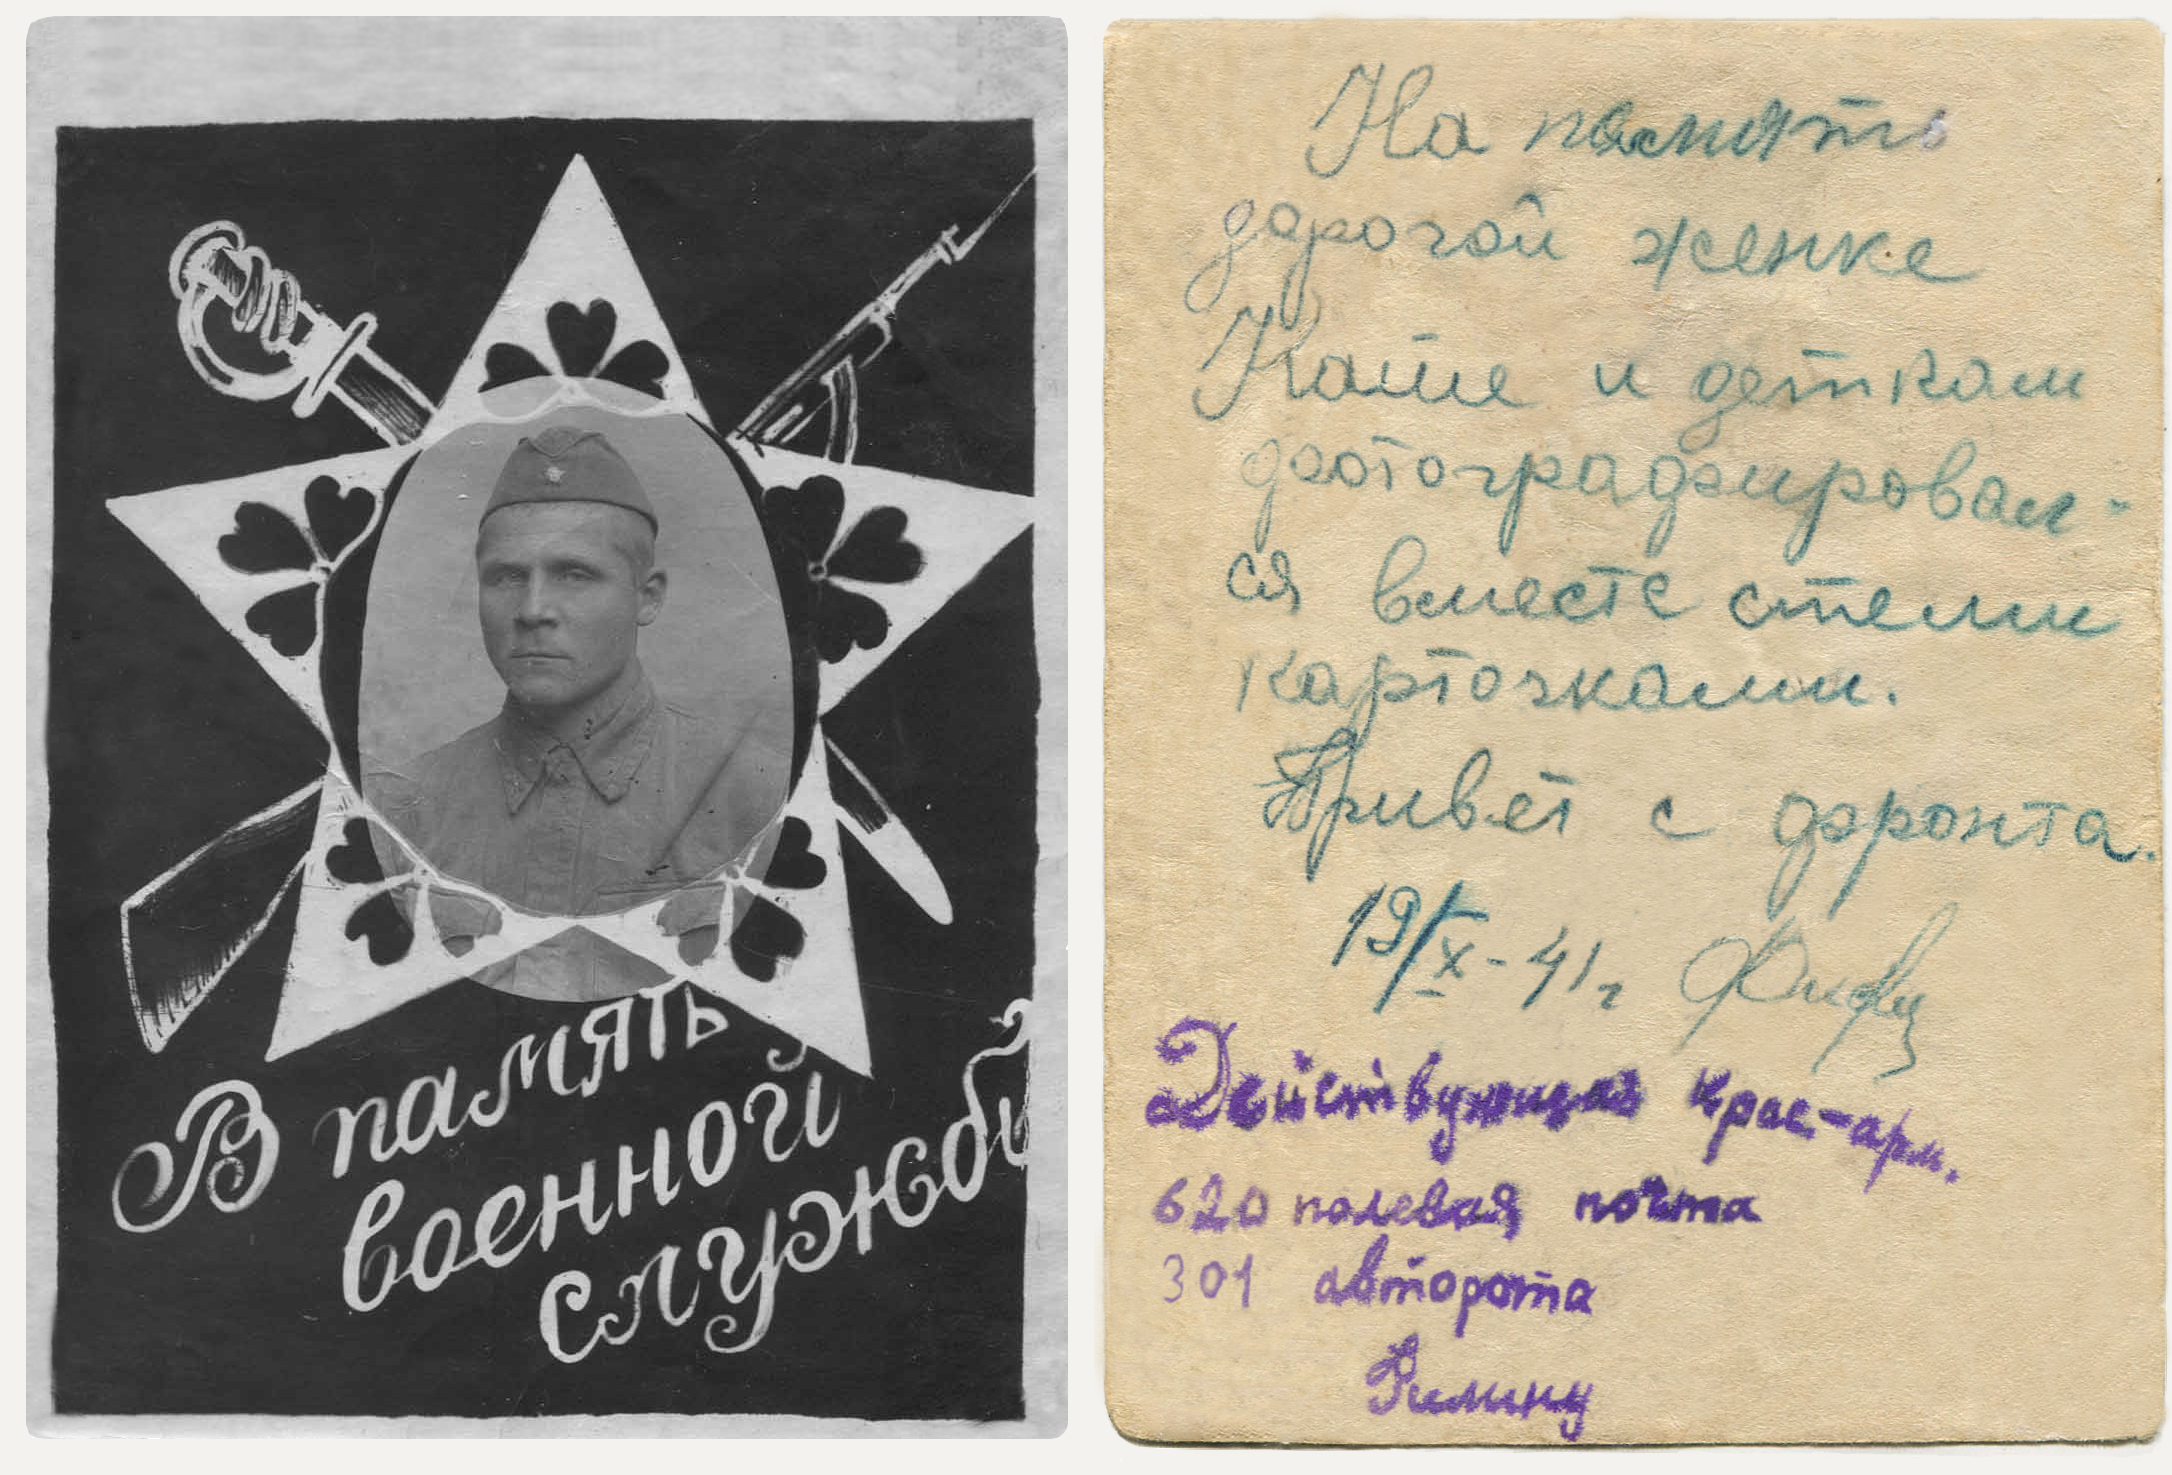 В память
военной
службы
На память
дорогой женке
Кате и деткам
фотографировал-
ся вместе стеми
карточками.
Привет с фронта.
19/IX-41г
Действующая крас-арм.
620 полевая почта
301 авторота